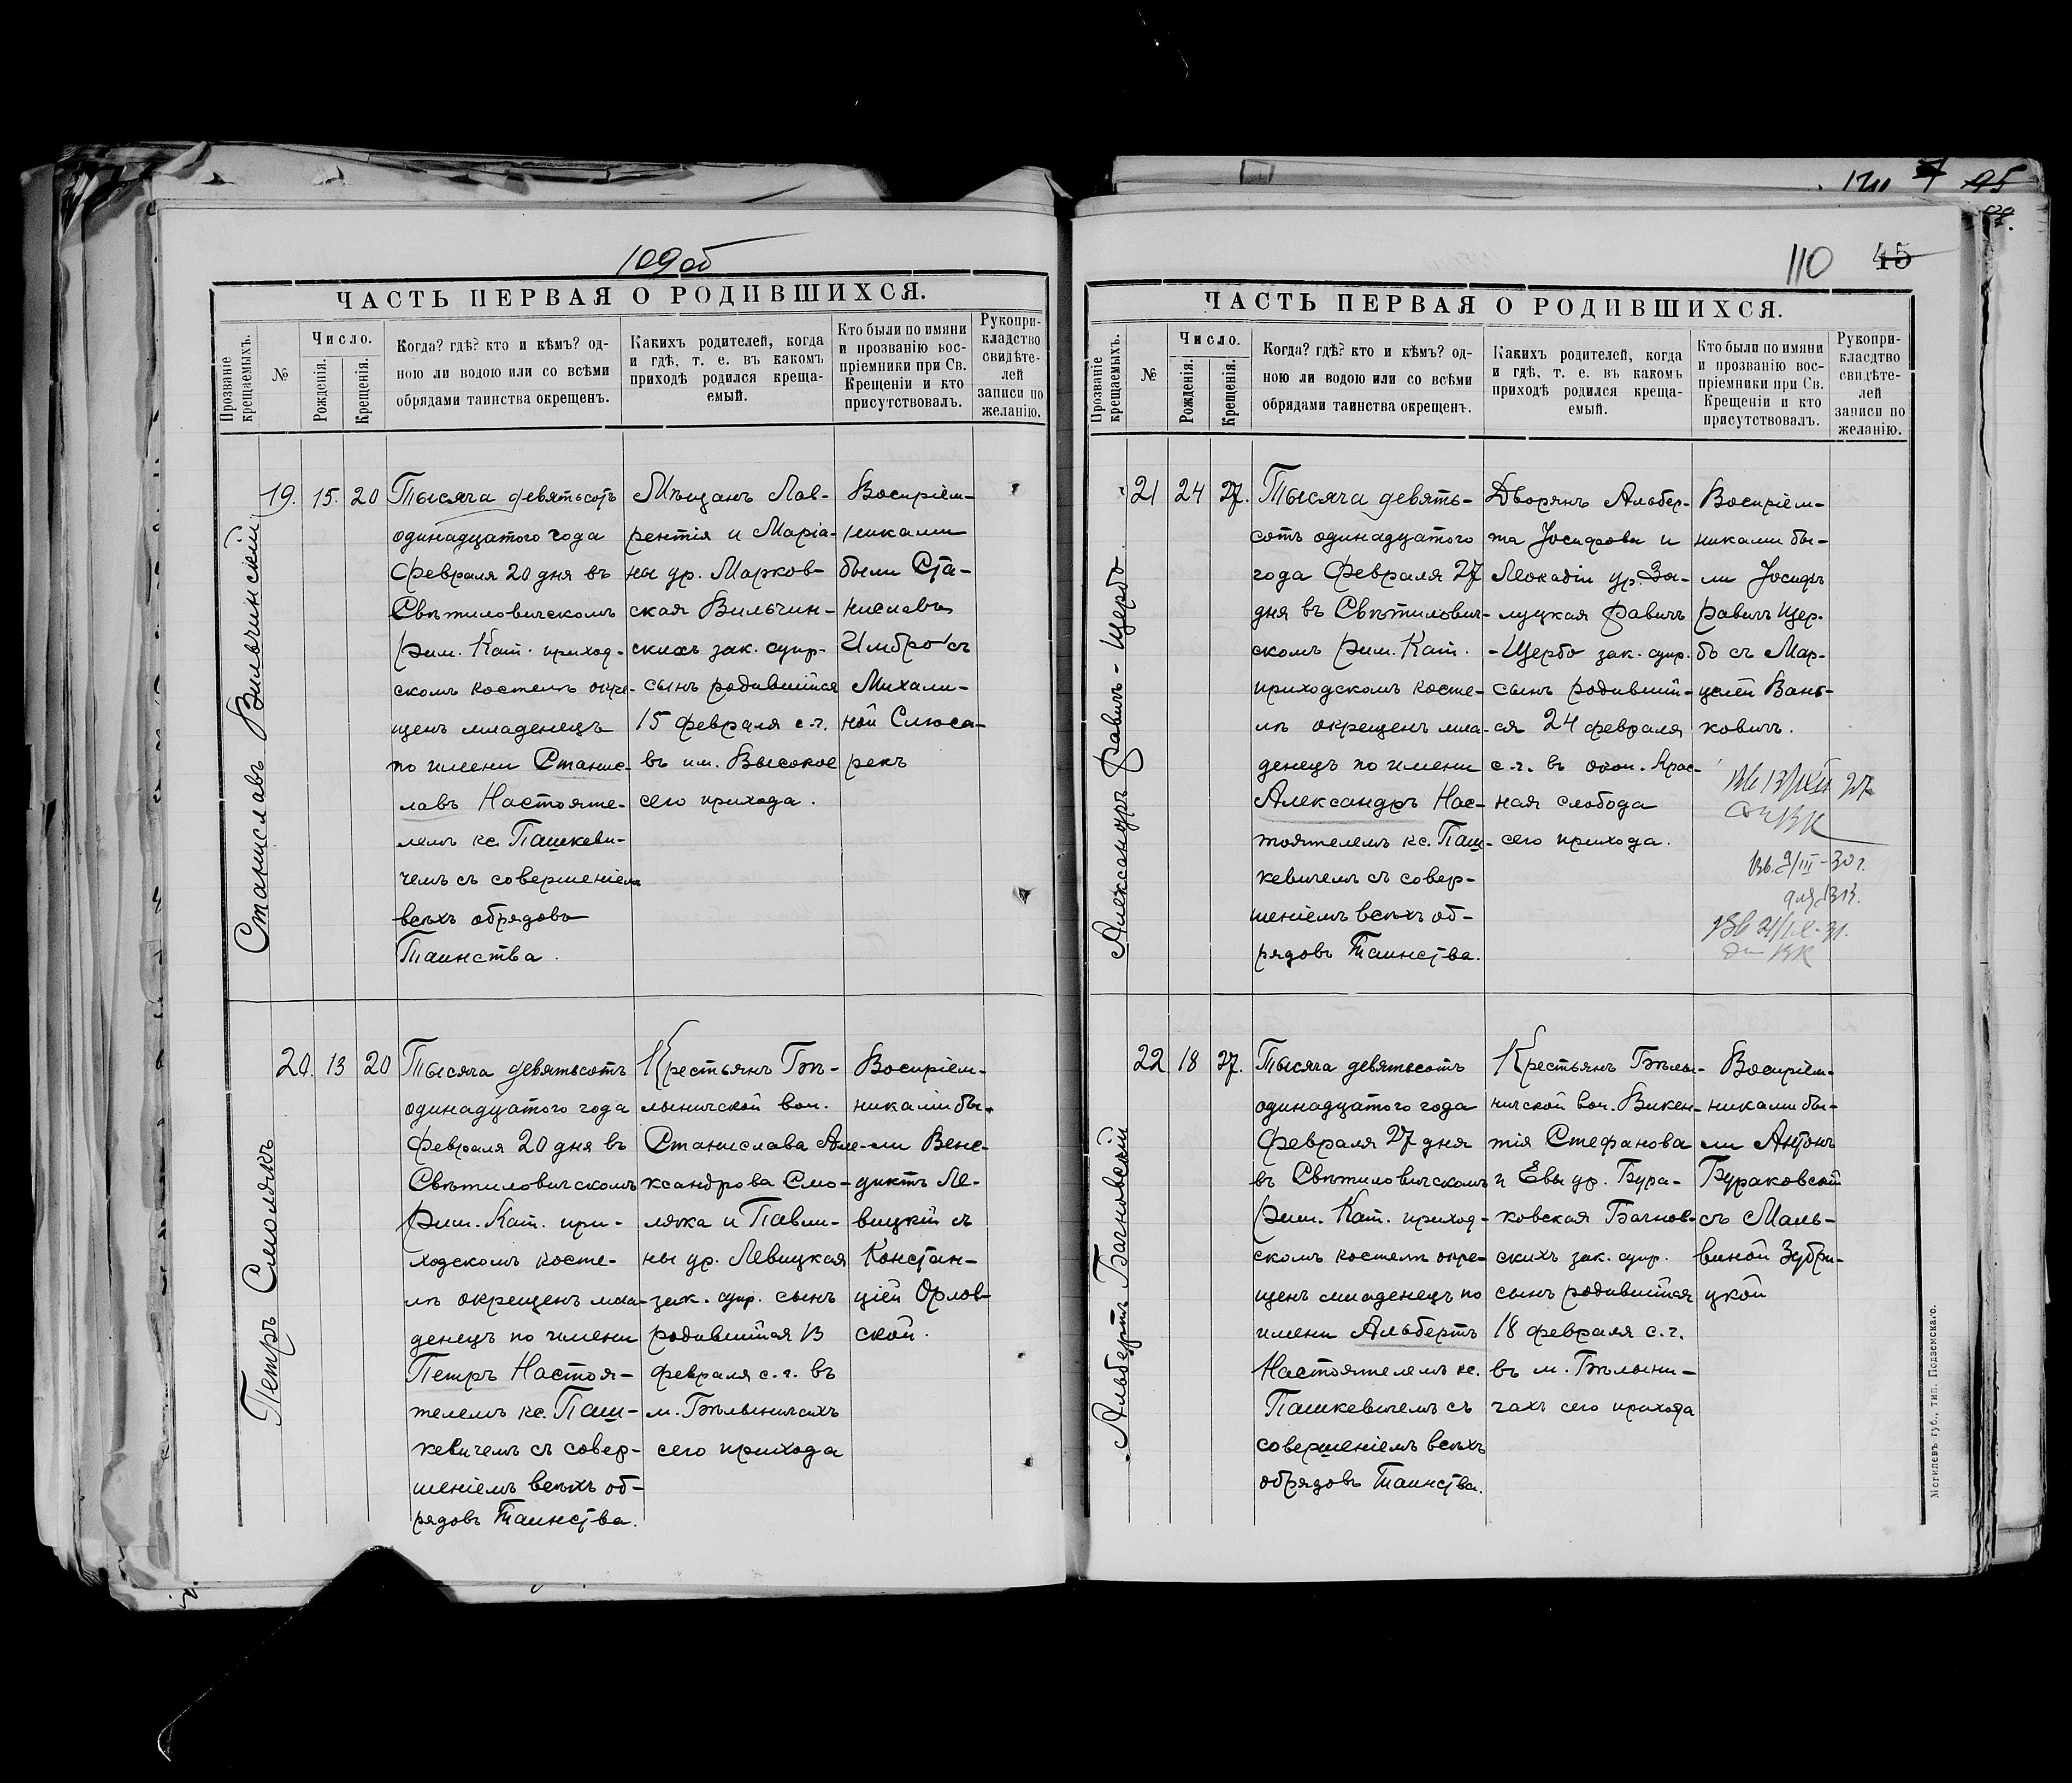 109об
ЧАСТЬ ПЕРВАЯ О РОДИВШИХСЯ.
Прозваніе крещаемыхъ.
№
Число.
Рожденія.
Крещенія.
Когда? гдѣ? кто и кѣмъ? од-
ною ли водою или со всѣми
обрядами таинства окрещенъ.
Каких​ъ родителей, когда
и гдѣ, т. е. въ какомъ
приходѣ родился креща-
емый.
Кто были по имяни
и прозванію вос-
пріемники при Св.
Крещеніи и кто
присутствовалъ.
Рукопри-
кладство
свидѣте-
лей
записи по
желанію.
Станиславъ Вильчинскій
19. 15. 20
Тысяча девятьсотъ
одинадцатого года
февраля 20 дня въ
Свѣтиловичскомъ
Рим. Кат. приход-
скомъ костелѣ окре-
щенъ младенецъ
по имени Станис-
лавъ Настояте-
лемъ кс. Пашкеви-
чемъ съ совершеніемъ
всѣхъ обрядовъ
Таинства.
Мѣщанъ Лав-
рентія и Маріа-
ны ур. Марков-
ская Вильчин-
скихъ зак. супр-
сынъ родившійся
15 февраля с.г.
въ им. Высокое
сего прихода.
Воспріем-
никами
были Ста-
ниславъ
Имбро съ
Михали-
ной Слюса-
рекъ
Петръ Смолякъ
20. 13 20
Тысяча девятьсотъ
одинадцатого года
февраля 20 дня въ
Свѣтиловичскомъ
Рим. Кат. при-
ходскомъ косте-
лѣ окрещенъ мла-
денецъ по имени
Петръ Настоя-
телемъ кс. Паш-
кевичемъ съ совер-
шеніемъ всѣхъ об-
рядовъ Таинства.
Крестьянъ Бѣ-
лыничской вол.
Станислава Але-
ксандрова Смо-
ляка и Павли-
ны ур. Левицкая
зак. супр. сынъ
родившійся 13
февраля с.г. въ
м. Бѣлыничахъ
сего прихода
Воспріем-
никами бы-
ли Вене-
диктъ Ле-
вицкій съ
Констан-
ціей Орлов-
ской.
110 45
ЧАСТЬ ПЕРВАЯ О РОДИВШИХСЯ.
Прозваніе крещаемыхъ.
№
Число.
Рожденія.
Крещенія.
Когда? гдѣ? кто и кѣмъ? од-
ною ли водою или со всѣми
обрядами таинства окрещенъ.
Какихъ родителей, когда
и гдѣ, т. е. въ какомъ
приходѣ родился креща-
емый.
Кто были по имяни
и прозванію вос-
пріемники при Св.
Крещеніи и кто
присутствовалъ.
Рукопри-
класдтво
свидѣте-
лей
записи по
желанію.
Александръ Равичъ-Щербо
21 24 27.
Тысяча девять-
сотъ одинадцатого
года февраля 27
дня въ Свѣтилович-
скомъ Рим. Кат.
приходскомъ косте-
лѣ окрещенъ мла-
денецъ по имени
Александръ Нас-
тоятелемъ кс. Паш-
кевичемъ съ совер-
шеніемъ всѣхъ об-
рядовъ Таинства.
Дворянъ Альбер-
та Іосифова и
Леокадіи ур. За-
луцкая Равичъ
-Щербо зак. супр.
сынъ родившій-
ся 24 февраля
с.г. въ окол. Крас-
ная слобода
сего прихода.
Воспріем-
никами бы-
ли Іосифъ
Равичъ Щер-
бо съ Мар-
целей Вань-
ковичъ.
Альбертъ Бачновскій
22 18 27.
Тысяча девятьсотъ
одинадцатого года
февраля 27 дня
въ Свѣтиловичскомъ
Рим. Кат. приход-
скомъ костелѣ окре-
щенъ младенецъ по
имени Альбертъ
Настоятелемъ кс.
Пашкевичемъ съ
совершеніемъ всѣхъ
обрядовъ Таинства.
Крестьянъ Бѣлы-
ничской вол. Викен-
тія Стефанова
и Евы ур. Бура-
ковская Бачнов-
скихъ зак. супр.
сынъ родившійся
18 февраля с.г.
въ м. Бѣлыни-
чахъ сего прихода
Воспріем-
никами бы-
ли Антонъ
Бураковскій
съ Маль-
виной Зубри-
цкой
Могилевъ губ., тип. Подземскаго.